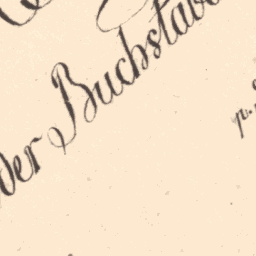 der Buchstabe
p.